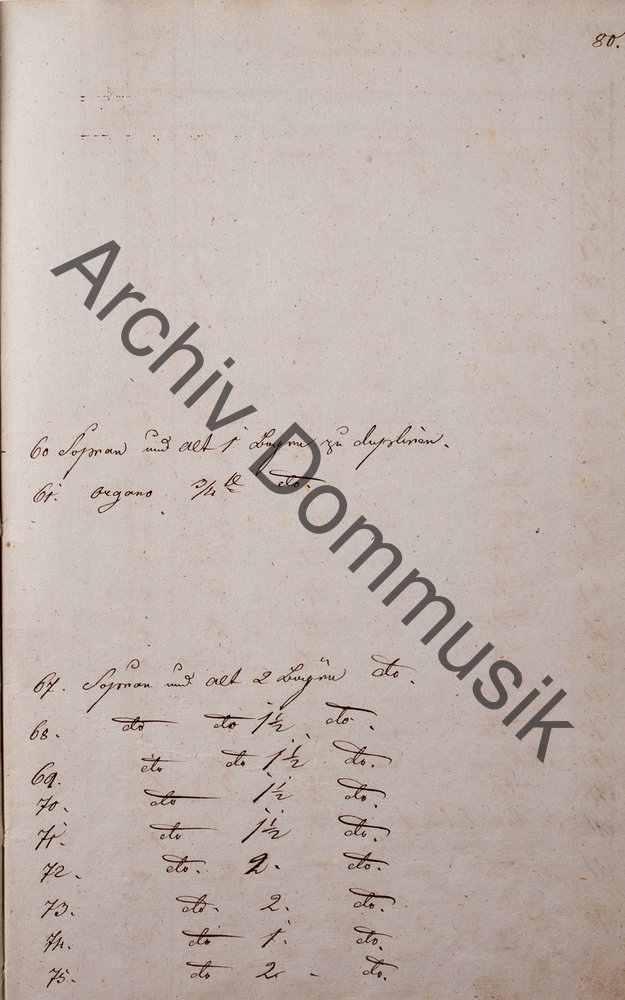 80.
60 Sopran und alt 1 Bogen zu dupliren.
61. organo 3/4 tl do.
67. Sopran und alt 2 Bogen do.
68. do do 1 1/2 do.
69. do do 1 1/2 do.
70. do 1 1/2 do.
71. do 1 1/2 do.
72. do. 2. do.
73. do. 2. do.
74. do 1. do.
75. do 2 - do.
Archiv Dommusik